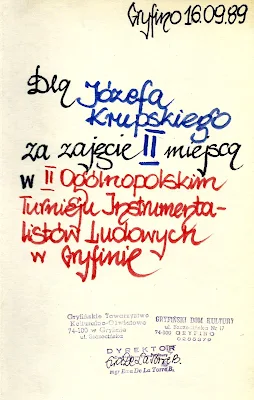 Gryfino 16.09.89
Dla Józefa
Krupskiego
za zajęcie II miejsca
w II Ogólnopolskim
Turnieju Instrumenta-
listów Ludowych
w Gryfinie
Gryfińskie Towarzystwo
Kulturalno-Oświatowe
74-100 w Gryfinie
ul. Szczecińska
GRYFIŃSKI DOM KULTURY
ul. Szczecińska Nr 17
74-100 GRYFINO
DYREKTOR
mgr Ewa De La Torre B.